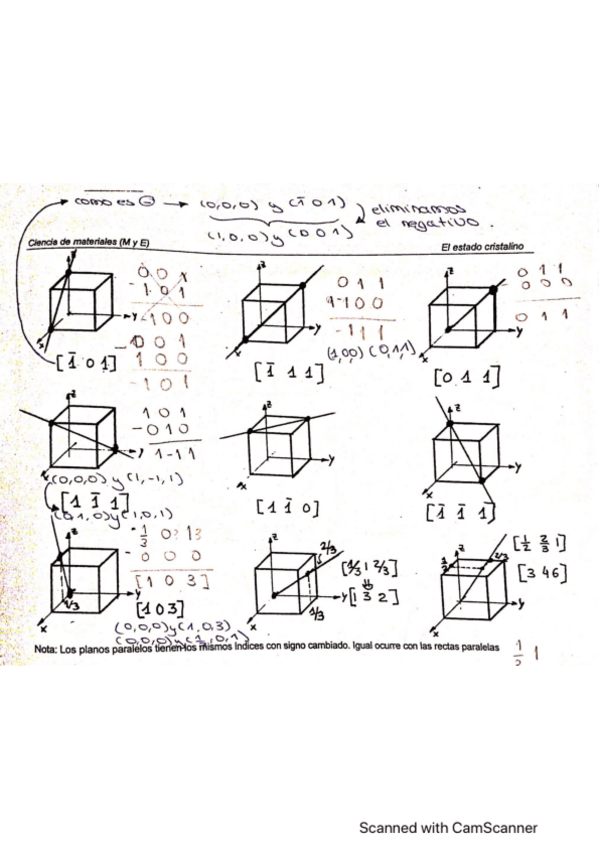 como es ⊖ → (0,0,0) y (1̄ 0 1) eliminamos
el negativo.
(1,0,0) y (0 0 1)
Ciencia de materiales (M y E) El estado cristalino
z y
0 0 1
- 1 0 1
- 1 0 0
0 0 1
1 0 0
- 1 0 1
[1̄ 0 1]
z y x
0 1 1
- 1 0 0
- 1 1 1
(1,0,0) (0,1,1)
[1̄ 1 1]
z y x
0 1 1
0 0 0
0 1 1
[0 1 1]
z y x
1 0 1
- 0 1 0
1 -1 1
(0,0,0) y (1,-1,1)
[1 1̄ 1]
(0,1,0) y (1,0,1)
z y x
[1 1̄ 0]
z y x
[1̄ 1̄ 1]
z y x
1/3
0 0 0
[1 0 3]
1/3
[1 0 3]
(0,0,0) y (1,0,3)
z y x
2/3
1/3
[1/3 1 2/3]
[1 3 2]
z y x
1/2
2/3
[1/2 2/3 1]
[3 4 6]
Nota: Los planos paralelos tienen los mismos índices con signo cambiado. Igual ocurre con las rectas paralelas
1/2 1
Scanned with CamScanner